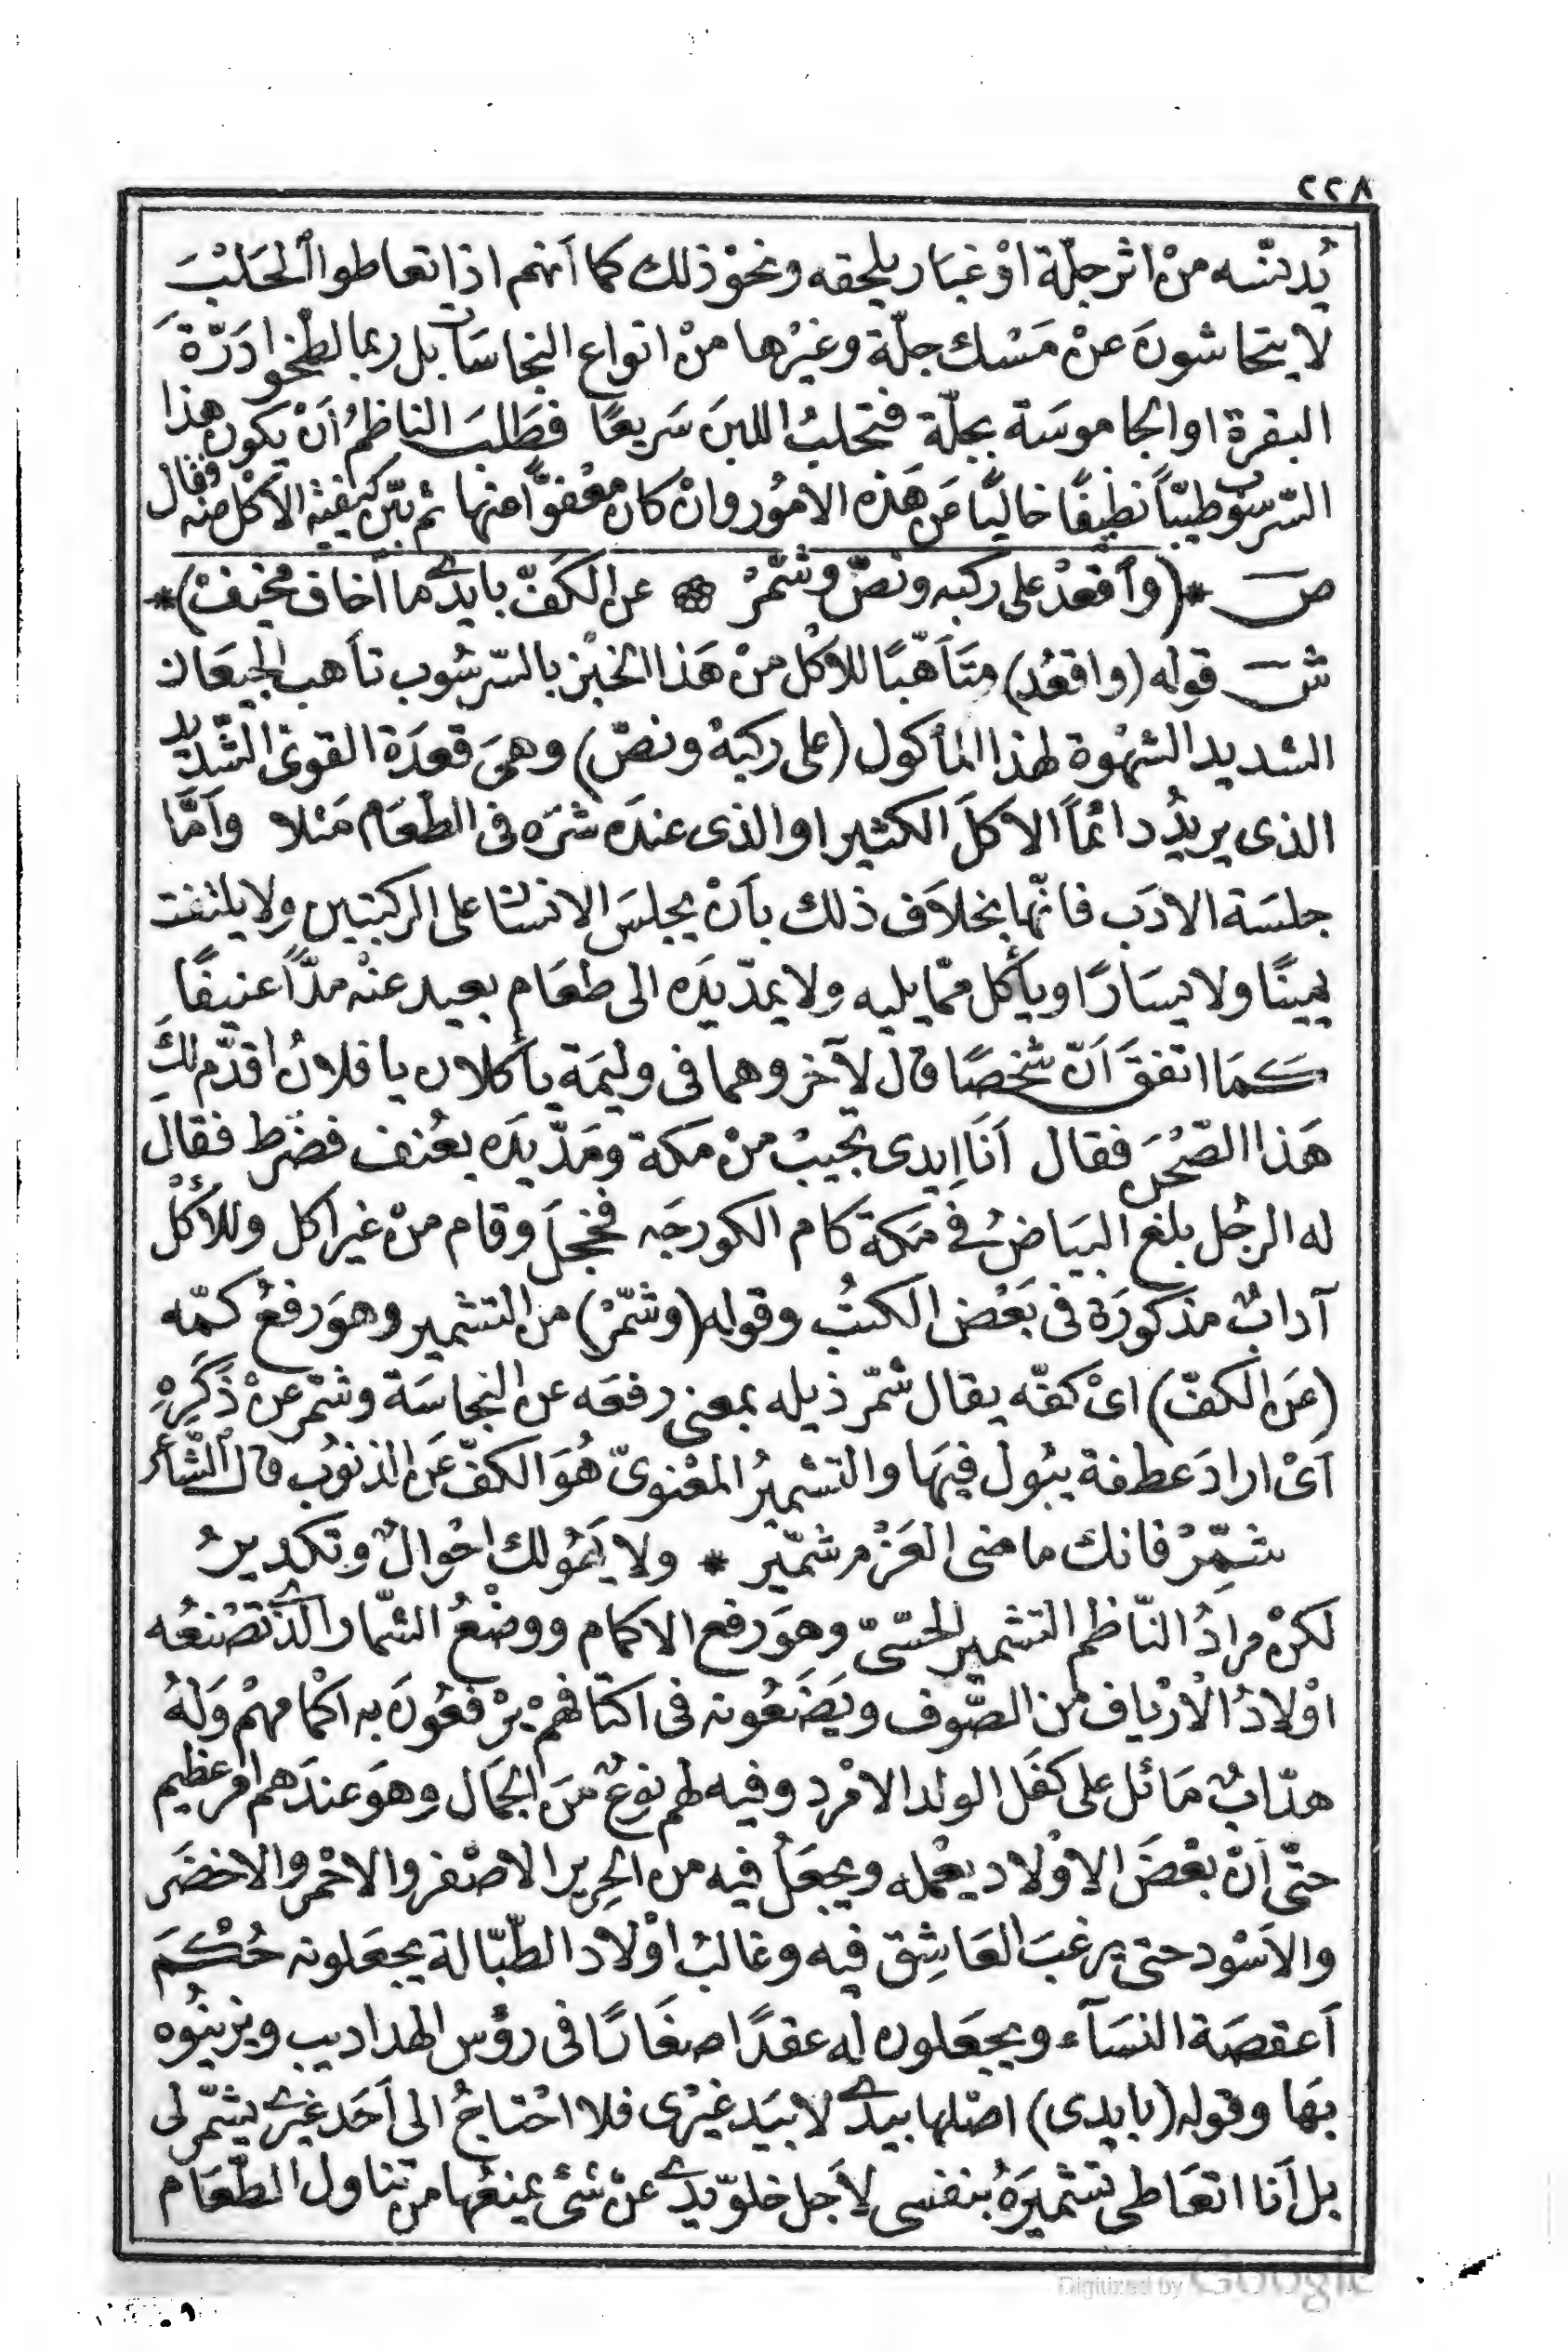 ٢٢٨
يُدنّسه منْ اثر جلّة اوْ غبَار يلحقه ونحوْ ذلك كما أنهم اذا تعاطوا الحَلْبَ
لا يتحاشونَ عنْ مَسْك جلّة وغيْرها منْ انواع النجاسَات بل ربما لطّخوا دَرّةَ
البقرة او الجاموسَة بجلّة فتحلبُ اللبنَ سَريعًا فطَلبَ الناظمُ أنْ يكون هذا
السّرسُوب طيّباً نظيفًا خاليًا مَن هَذه الامُور وانْ كان معْفوًّا عنها ثم بيّن كيفية الاكل منه فقال
ص * (وأقعدْ على ركبه ونصّ وشمّرْ ۞ عن الكفّ بايدى ما أخاف مخيفْ) *
ش قوله (واقعُد) متَأهّبًا للأكل منْ هَذا الخبْز بالسّرسُوب تأهب الجيعَان
الشديد الشهْوة لهذا المأكول (على ركبهْ ونصّ) وهىَ قعدَة القوىّ الشّديد
الذى يريدُ دائماً الأكلَ الكثير او الذى عندَه شرَه فى الطعَام مَثلا وأمَّا
جلسَة الادَب فانّها بخلاَف ذلك بأنْ يجلسَ الانسَان على الركبتين ولا يلتفت
يمينًا ولا يسَارًا ويأكل ممّا يليه ولا يمدّ يدَه الى طعَام بعيد عنْه مدّاً عنيفًا
كمَا اتفقَ أنّ شخصًا قال لآخر وهما فى وليمَة يأكلان يا فلانُ اقدّم لكَ
هَذا الصّحْنَ فقال أنَا اِيدى تجيبْ منْ مكة ومَدّ يدَه بعُنف فضَرط فقال
له الرجُل بلغ البيَاضُ فى مَكة كام الكورجَه فخجلَ وقام منْ غير أكل وللأكْل
آدابٌ مذكورَة فى بَعْض الكتُب وقوله (وشمّرْ) من التشمير وهوَ رفعُ كمّه
(عَن الكفّ) اىْ كفّه يقال شمّر ذيله بمعنى رفعَه عن النجاسَة وشمّر عنْ ذَكَرِهِ
أىْ ارادَ عطفة يبُول فيهَا والتشْميرُ المعْنوىّ هُوَ الكفّ عَن الذنوُب قال الشّاعر
شمِّرْ فانك ماضى العَزْم شمّير * ولا يَهُولك احْوالٌ وتكديرُ
لكنْ مرادُ النّاظم التشمير الحسّىّ وهوَ رفع الاكمام ووضْعُ الشّمار الذى تصْنعُه
اوْلادُ الارْياف من الصّوف ويَضَعُونه فى اكتافهمْ يرْفعُونَ به اكمامهمْ وَلهُ
هدّابٌ مَائل على كفَل الولد الامْرد وفيه لهم نوعٌ منَ الجمَال وهوَ عندَهم امر عظيم
حتّى أنّ بعْضَ الاوْلاد يعْمله ويجعَلُ فيه من الحرير الاصْفر والاحْمر والاخضَر
والاَسْود حتى يرغبَ العَاشِق فيه وغالبُ اوْلاد الطبّالة يجعَلونه حُكْمَ
أعقصَة النسَآء ويجعَلون له عقدًا صغَارًا فى رؤس الهداديب ويزينُوه
بهَا وقوله (بايدى) اصْلها بيدى لا بيَد غيْرى فلا احْتاجُ الى أحَد غيْرى يشمّر لى
بل أنا اتعَاطى تشميَرهُ بنفسى لأجل خلوّ يدى عنْ شىْء يمنعُها من تناول الطّعَام